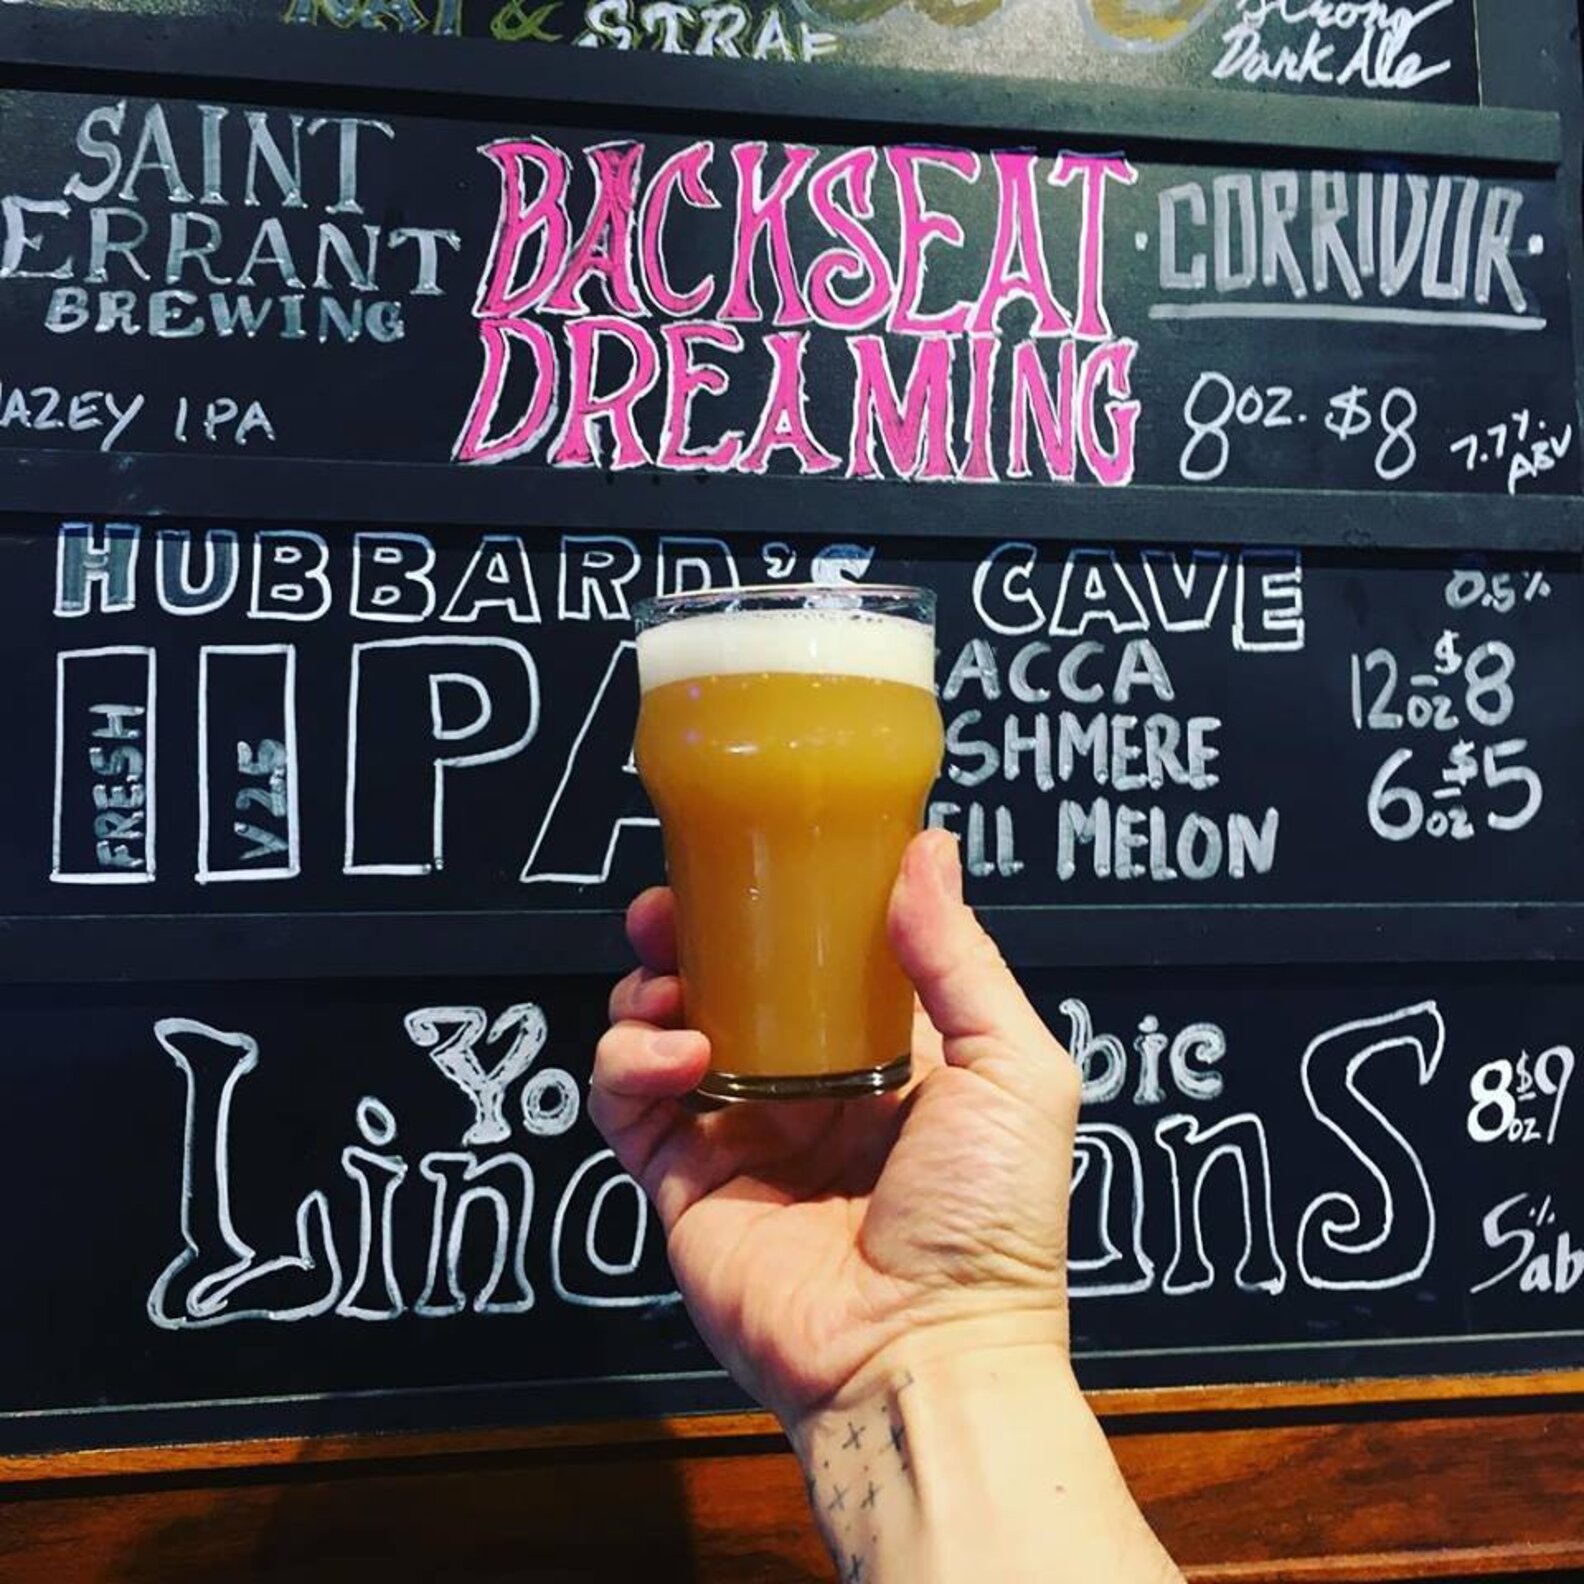 & STRAF
Strong
Dark Ale
SAINT
ERRANT
BREWING
AZEY IPA
BACKSEAT
DREAMING
·CORRIDOR·
8OZ. $8
7.7%
ABV
HUBBARD'S CAVE
8.5%
IIPA
FRESH
V25
ACCA
SHMERE
ELL MELON
12oz $8
6oz $5
Yo bic
Linc ans
8oz $9
5%
ab